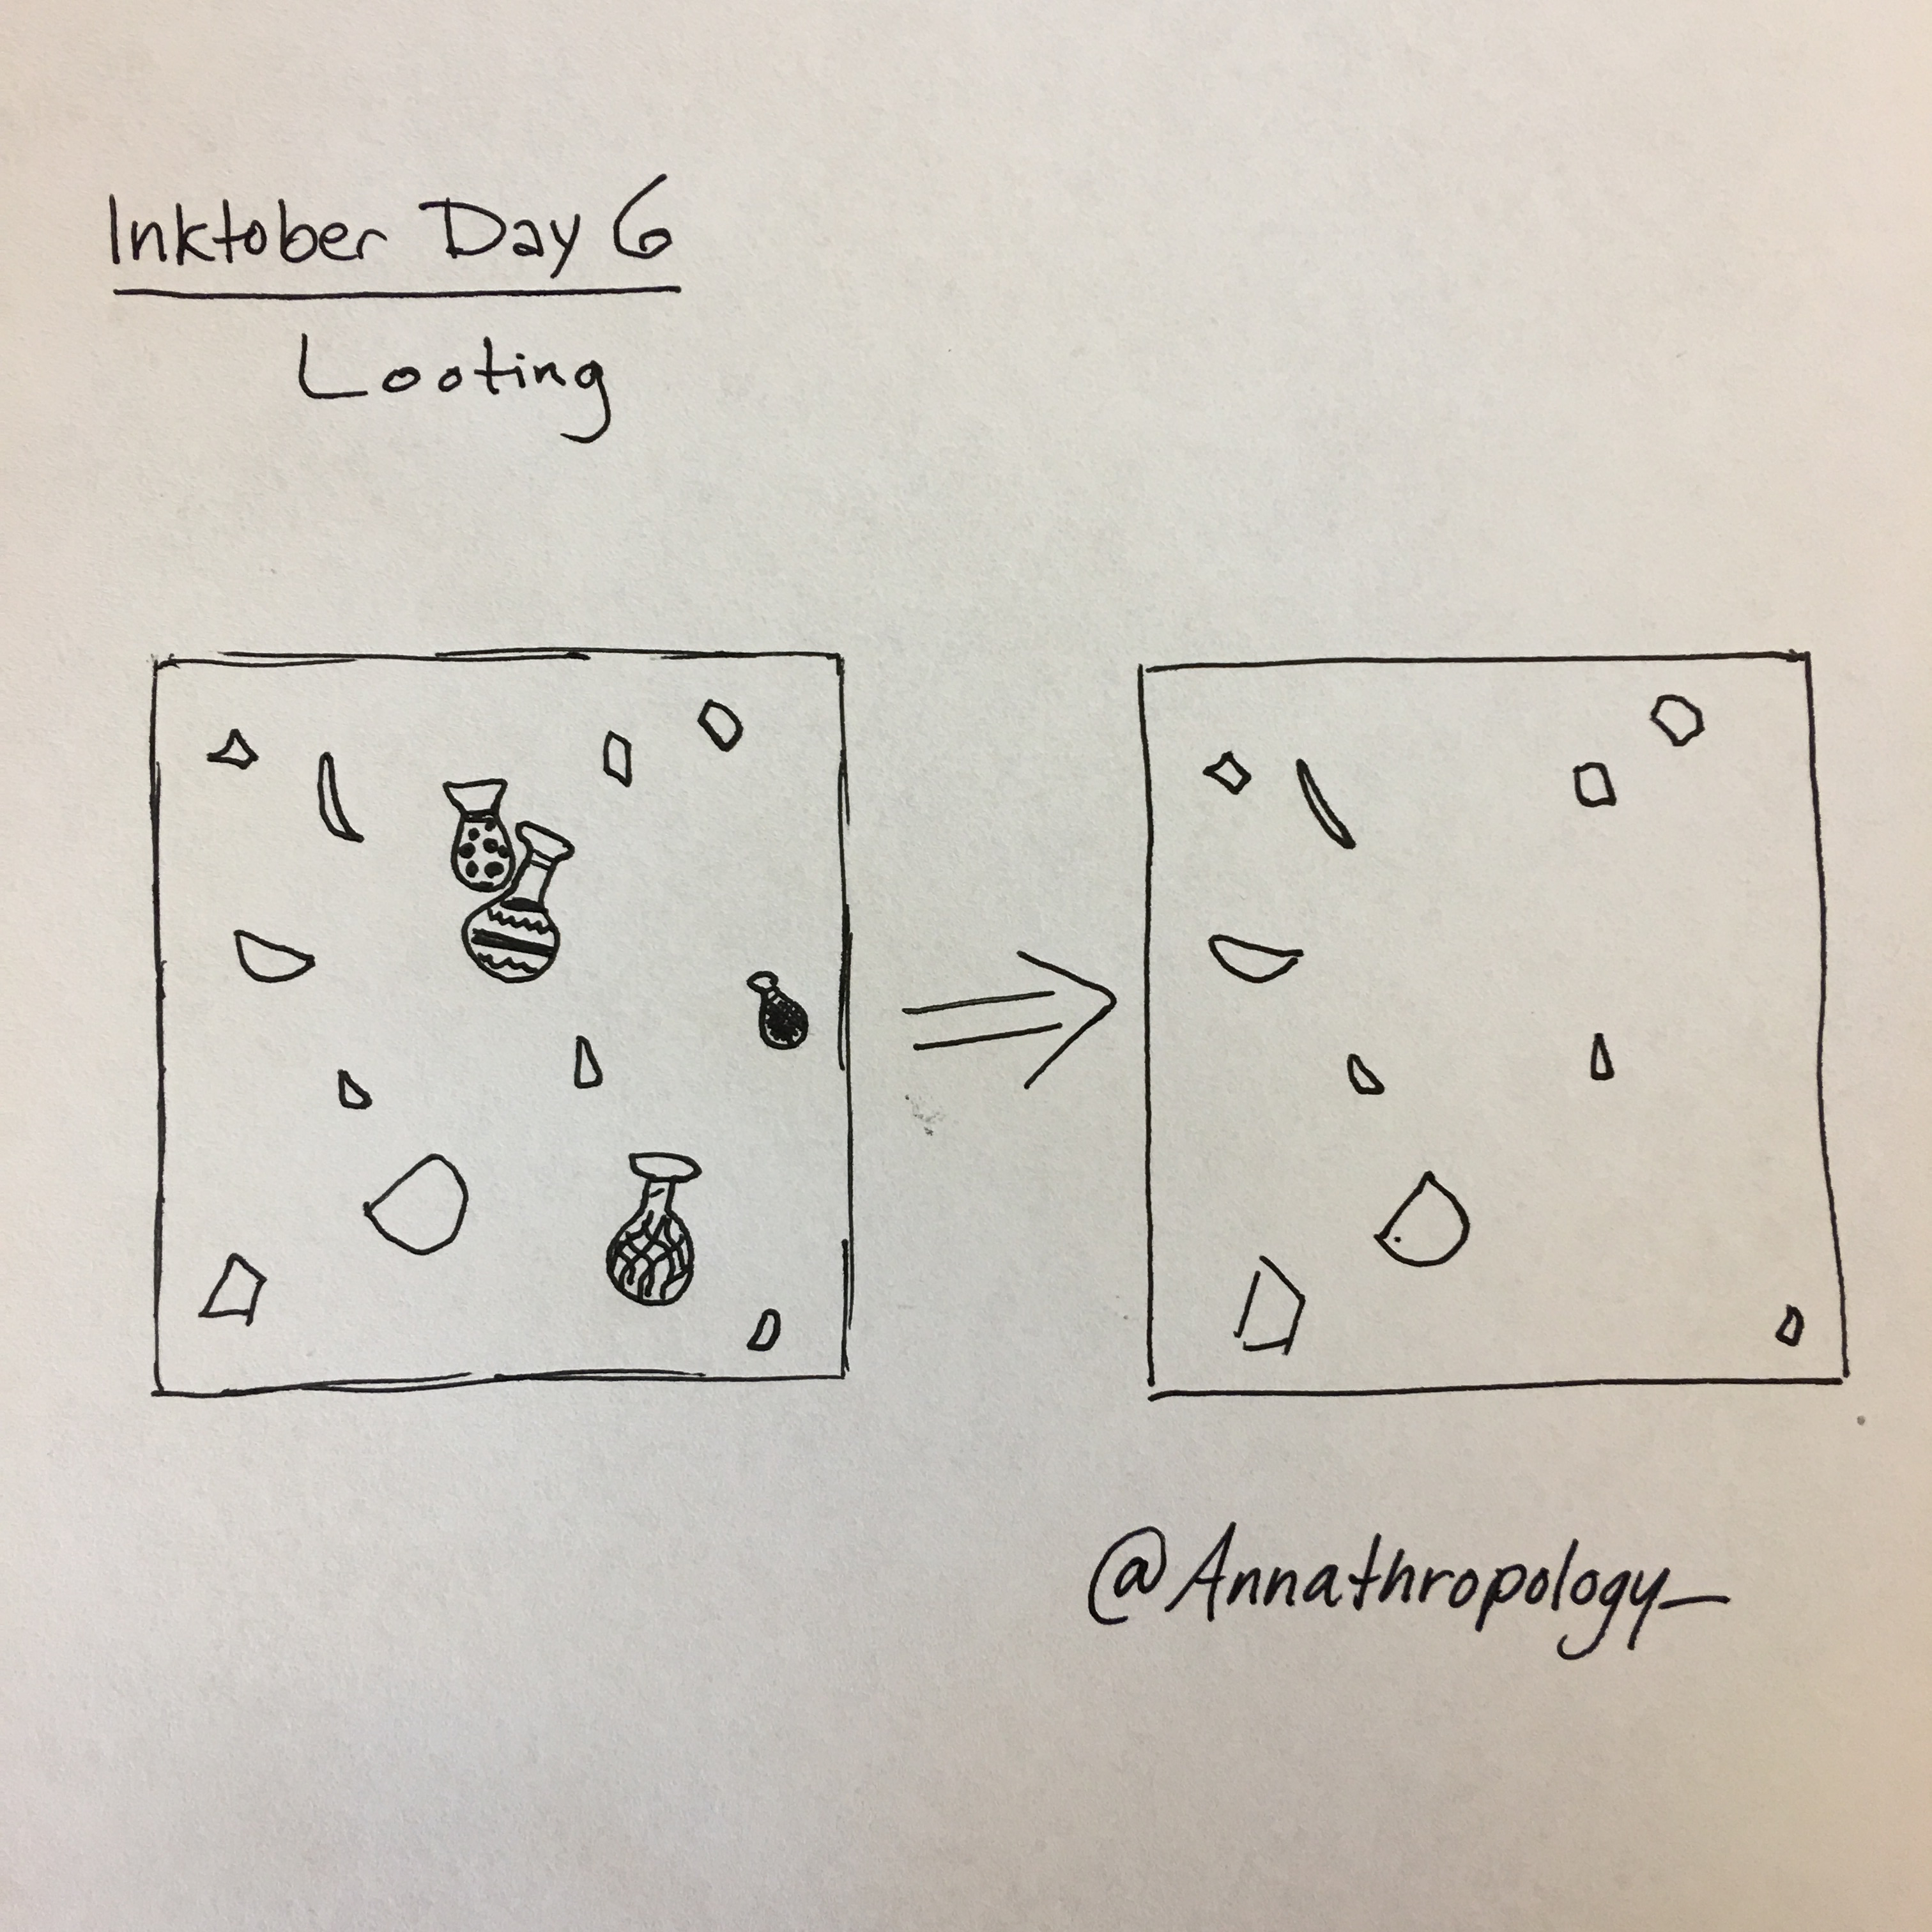 Inktober Day 6
Looting
@Annathropology_